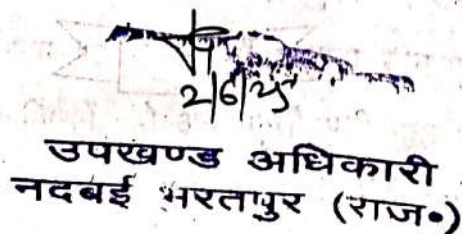 2/6/25
उपखण्ड अधिकारी
नदबई भरतपुर (राज॰)